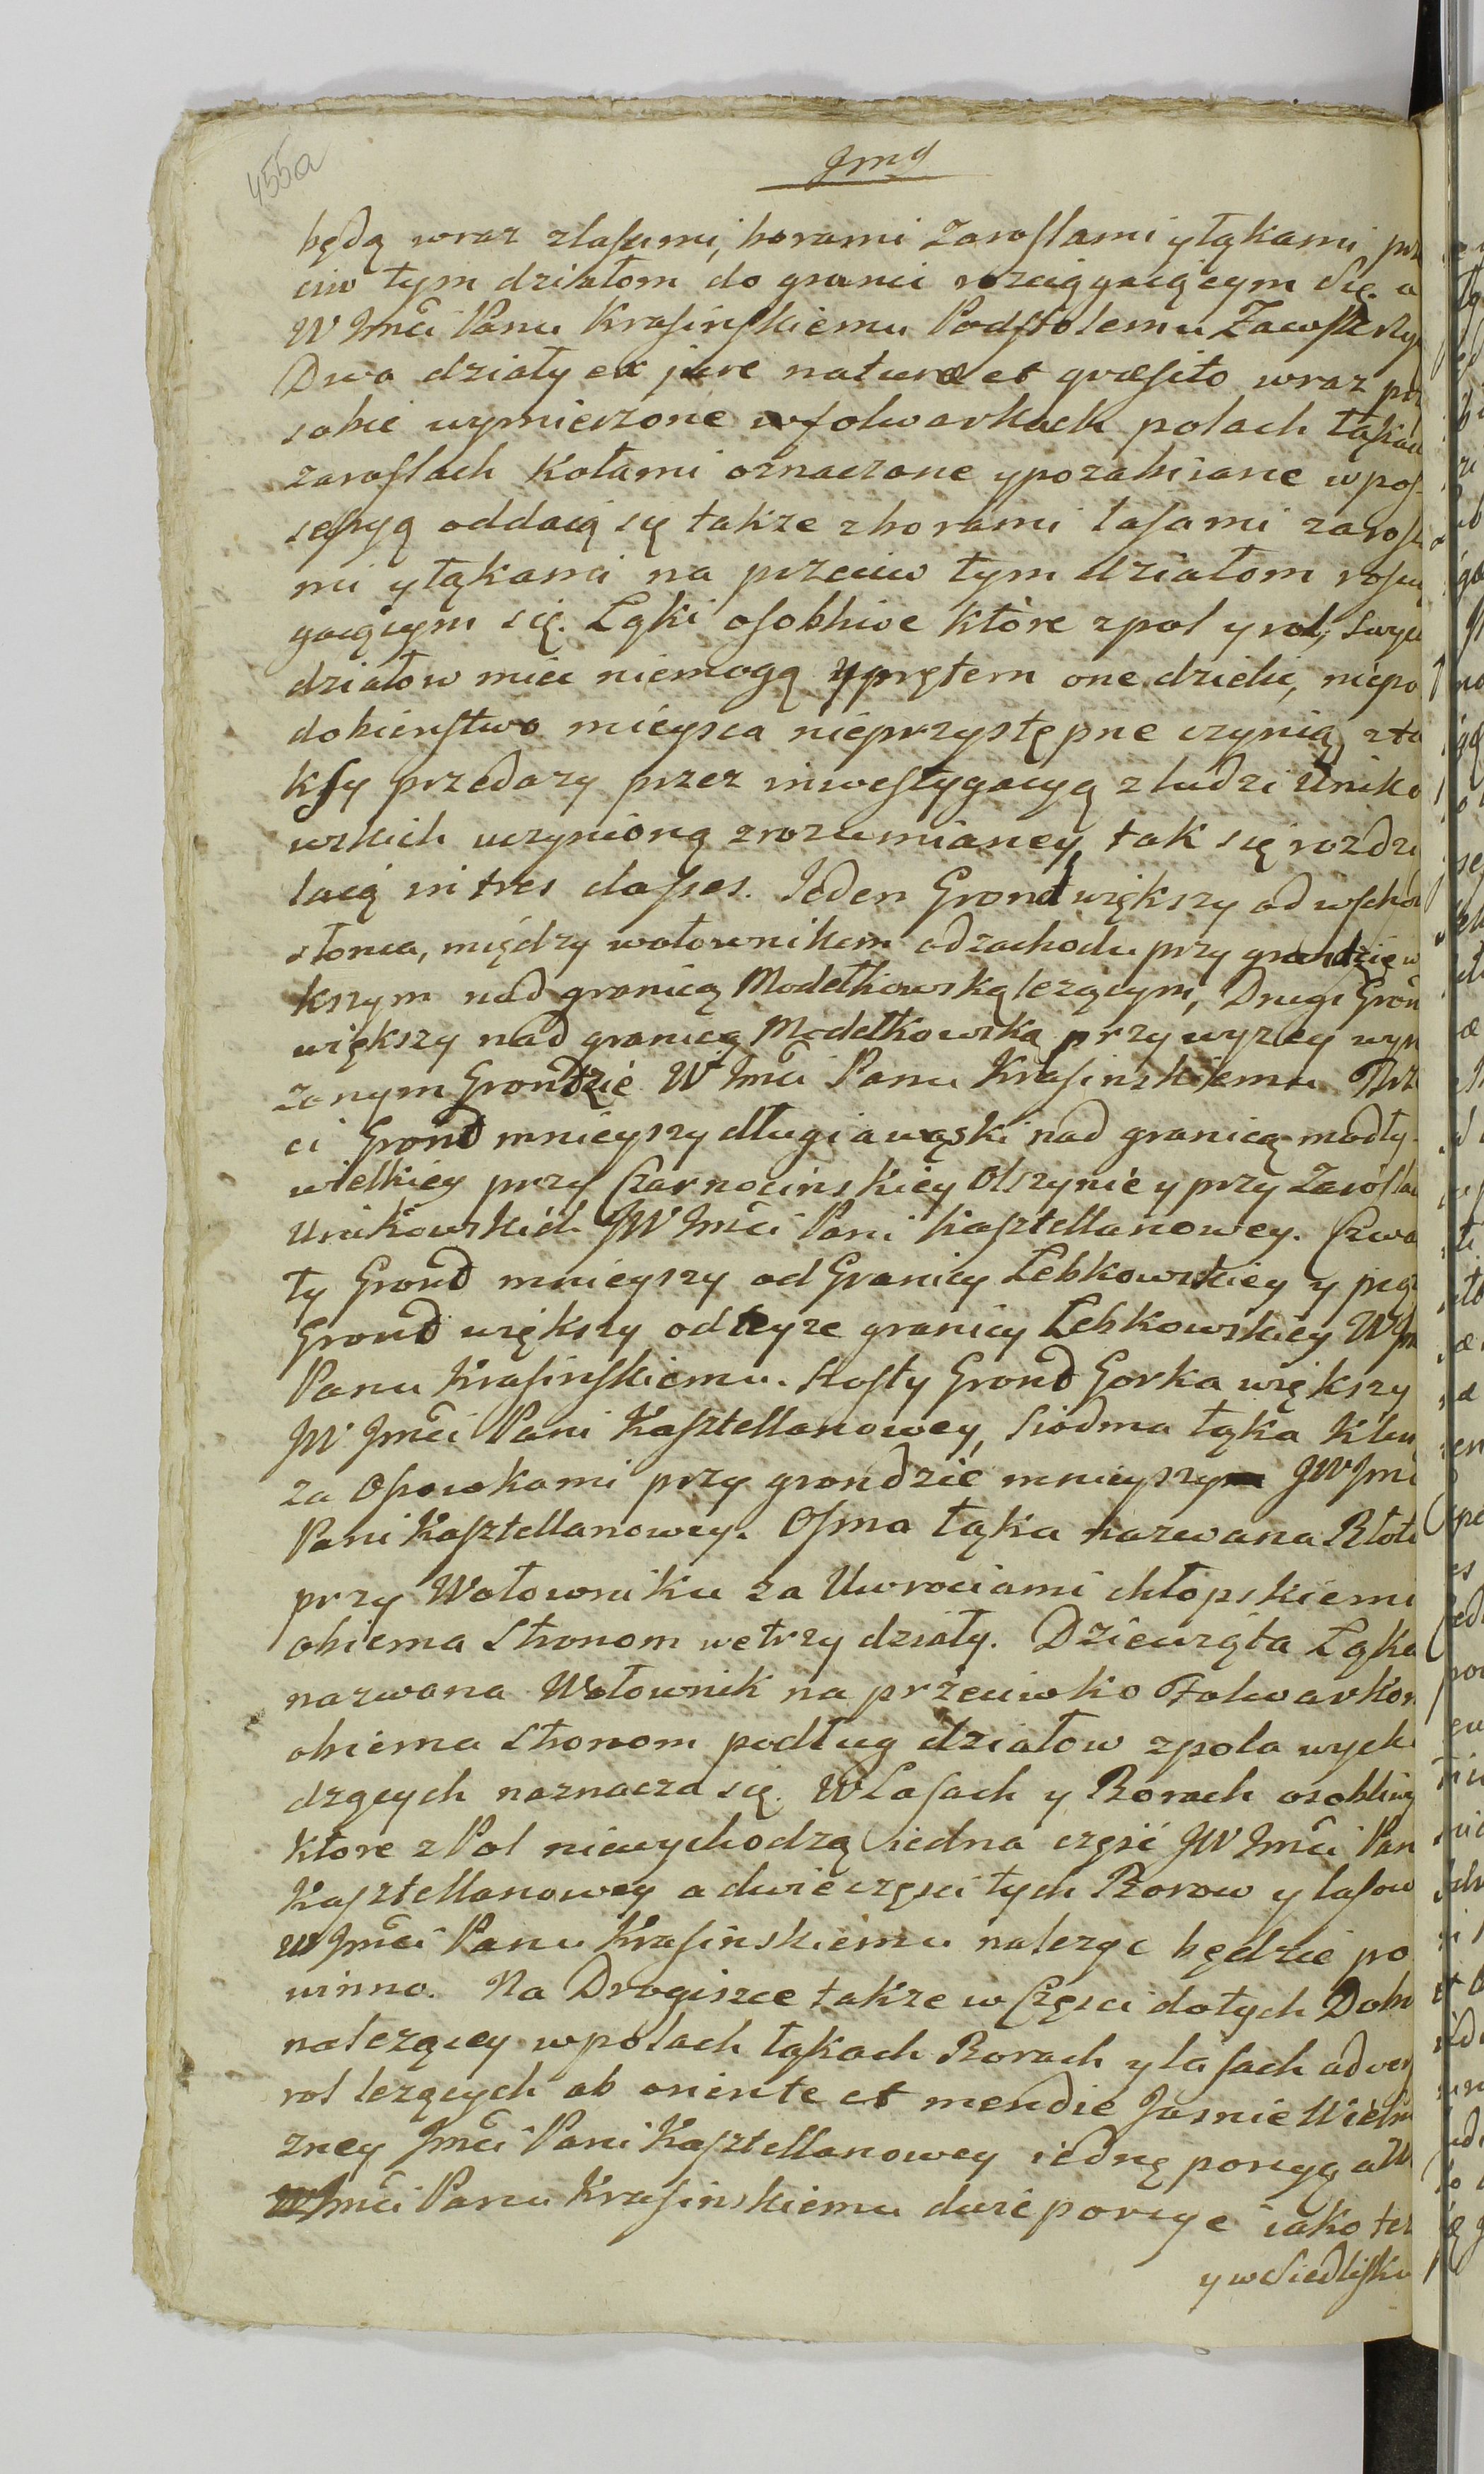 455a
Jmg
będą wraz zlasami, borami Zaroslami y łąkami prz
ciw tym działom do granic rozciągaiącym się. a
W Jmći Panu Krasinskiemu Podstolemu Zawskrzy
Dwa działy ex jure naturæ et quæsito wraz prz
sobie wymierzone wfolwarkach polach łąkach
zaroslach kołami oznaczone ypozabiiane wpos-
sessyą oddaią się także zborami lasami zarosla
mi y łąkami na przeciw tym działom roscią
gaiącym się. Łąki osobliwe które zpol y rol, swych
działow mieć niemogą y prętem one dzielić, niepo
dobienstwo mieysca nieprzystępne czynią, zta
ksy przedazy przez inwestygacyą zludzi Uniko
wskich uczynioną zrozumianey, tak się rozdzi
laią in tres classes. Jeden Grond większy od wschod
słonca, między wołownikem odzachodu przy grondzie w
kszym nad granicą Modełkowską lezącym, Drugi Gron
większy nad granicą Modełkowską przy wyzey wyra
zonym Grondzie W Jmći Panu Krasinskiemu Trze
ci Grond mnieyszy długi awąski nad granicą modły-
wielkiey przy Czarnocinskiey Olszynie y przy Zaroslac
Unikowskich JW Jmći Pani Kasztellanowey. Czwar
ty Grond mnieyszy od Granicy Łebkowskiey y pią
Grond większy od teyze granicy Łebkowskiey W Jm
Panu Krasinskiemu. Szosty Grond Gorka większy
JW Jmći Pani Kasztellanowey, Siodma łąka Klu
za Osowkami przy grondzie mnieyszym JW Jmć
Pani Kasztellanowey. Osma łąka nazwana Błoto
przy Wołowniku za Uwrociami chłopskiemi
obiema Stronom wetrzy działy. Dziewiąta Łąka
nazwana Wołownik na przeciwko Folwarkom
obiema Stronom podług działow zpola wycho
dzących naznacza się. WLasach y Borach osobliwy
które z Pol niewychodzą iedna część JW Jmći Pan
Kasztellanowey a dwie częsci tych Borow y lasow
W Jmći Panu Krasinskiemu nalezeć będzie po
winno. Na Drogiszce także w Częsci dotych Dobr
nalezącey wpolach łąkach Borach ylasach adver
rol lezących ab oriente et meridie Jasnie Wielm
zney Jmći Pani Kasztellanowey iednę porcyą a W
W Jmći Panu Krasinskiemu dwie porcye iako tez
y wSiedlisku